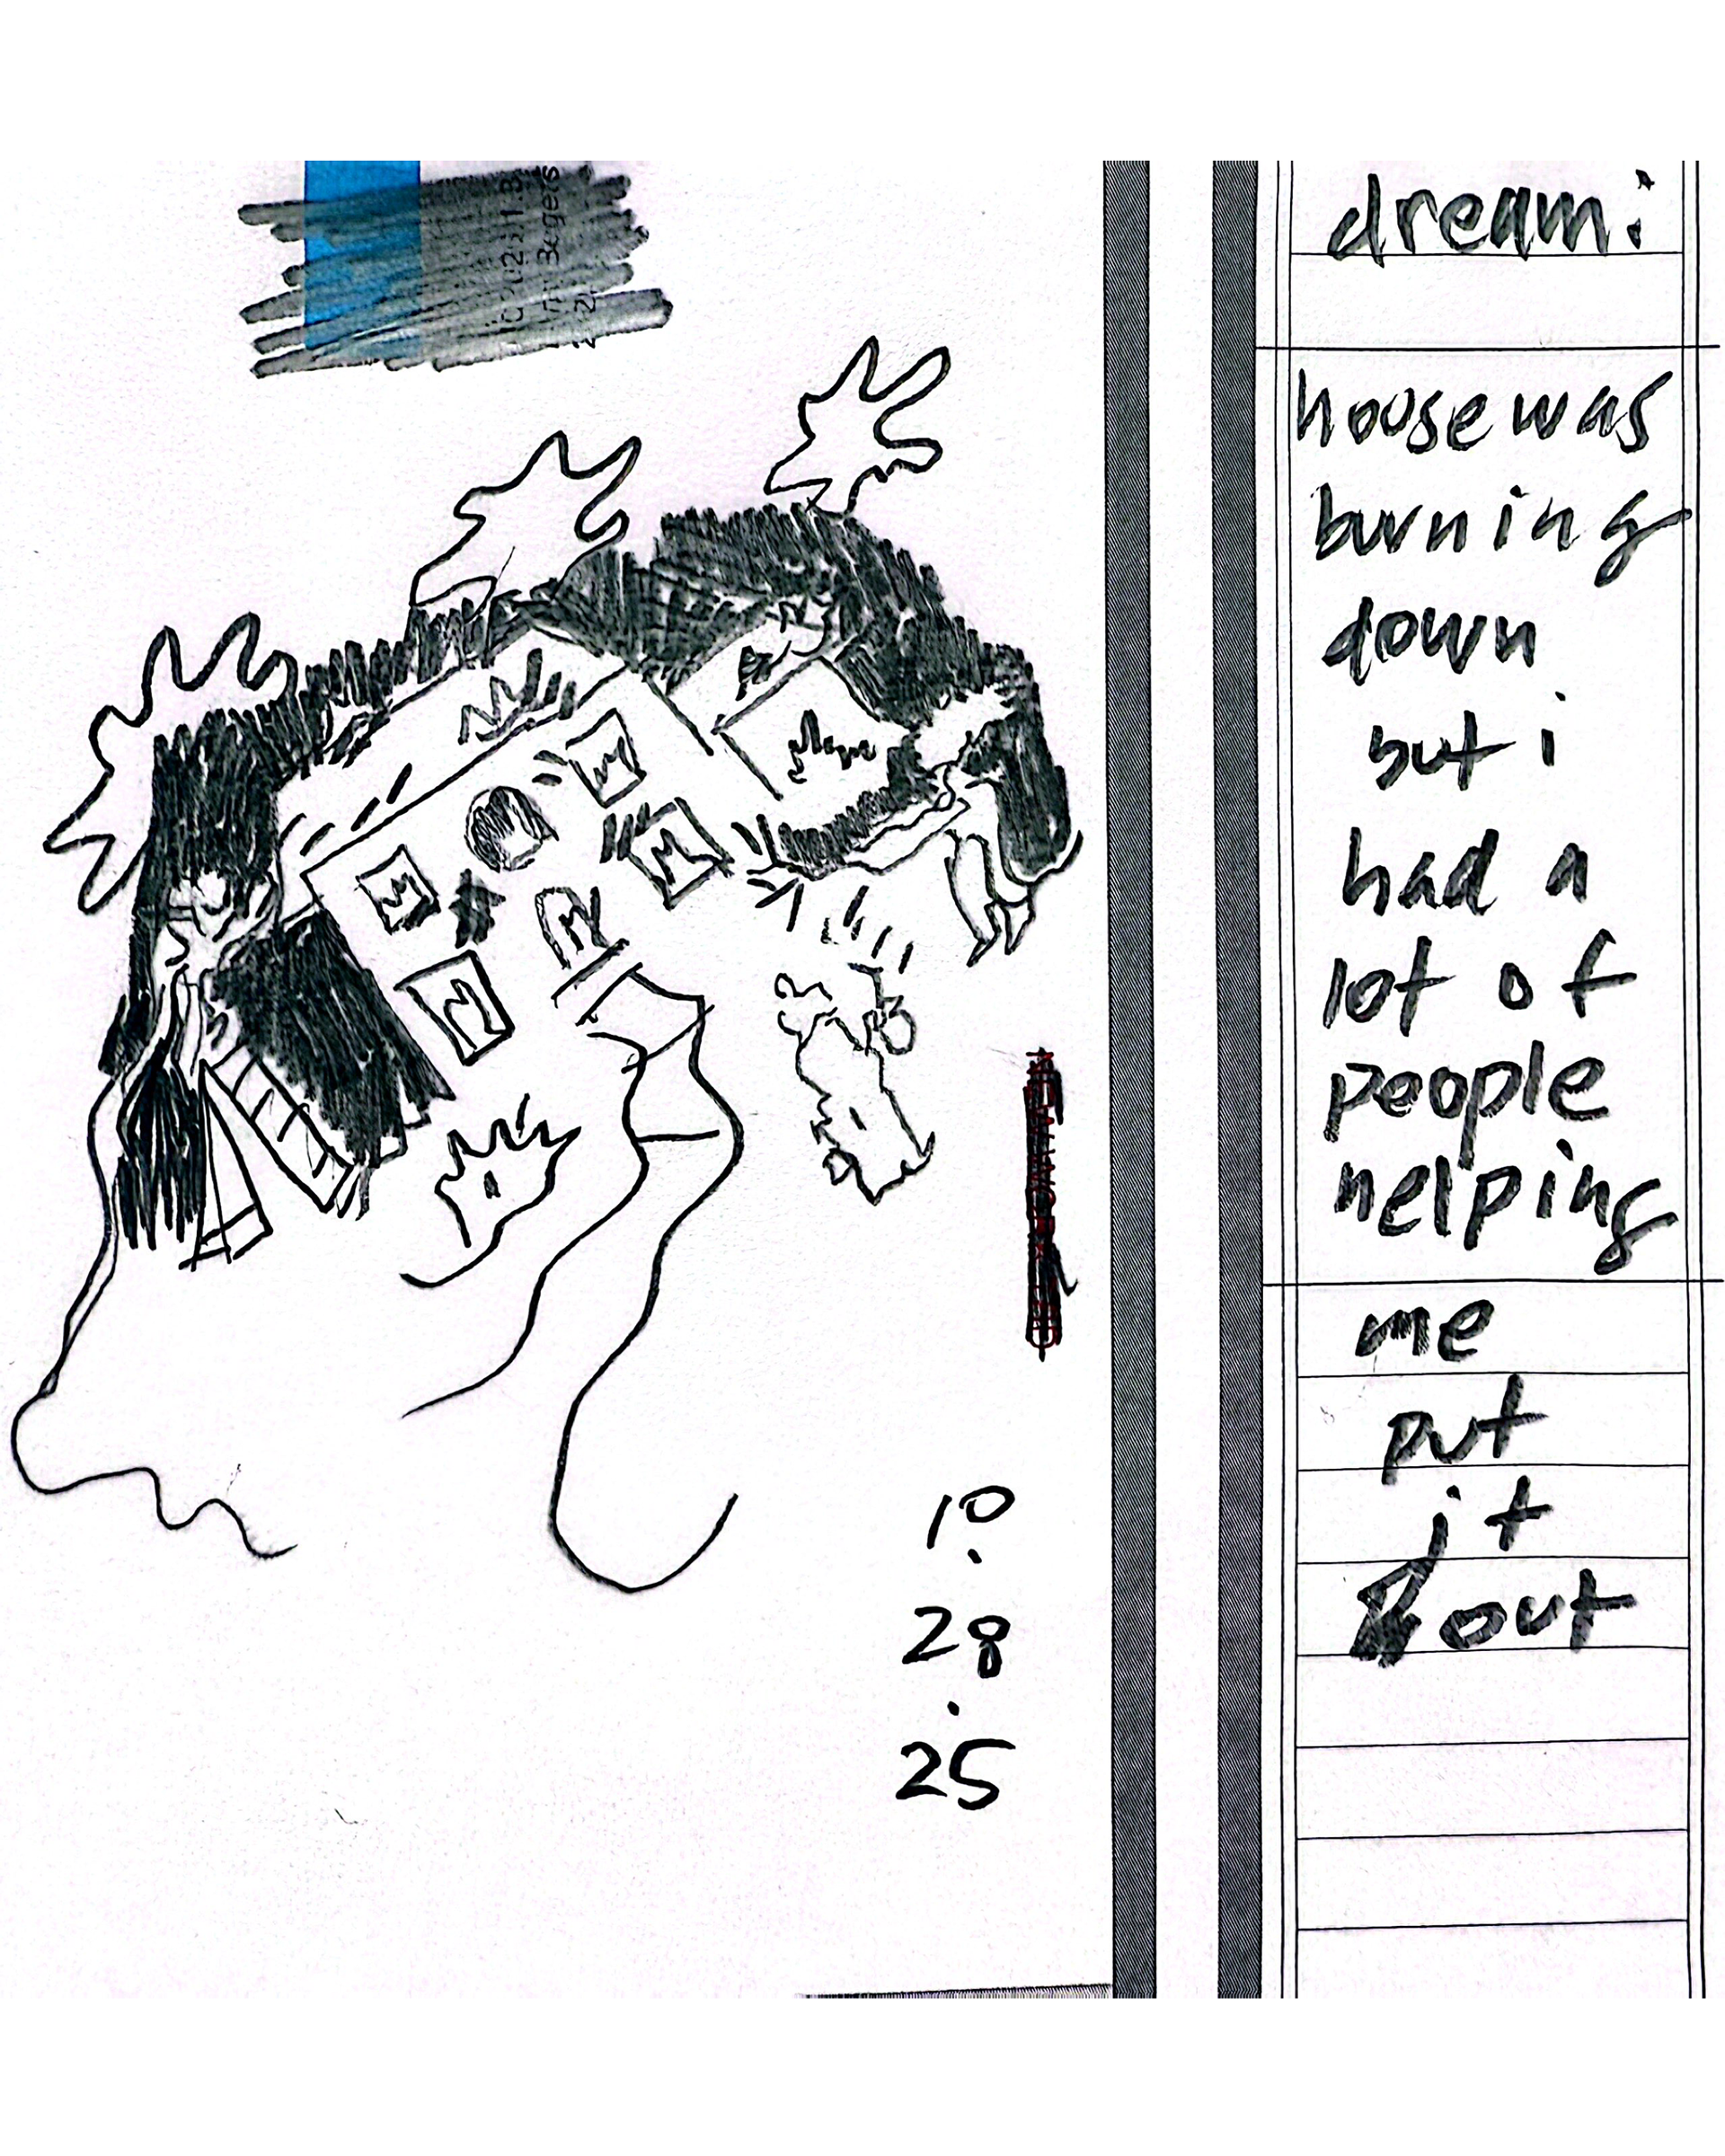 dream:
house was
burning
down
but i
had a
lot of
people
helping
me
put
it
out
10
.
28
.
25